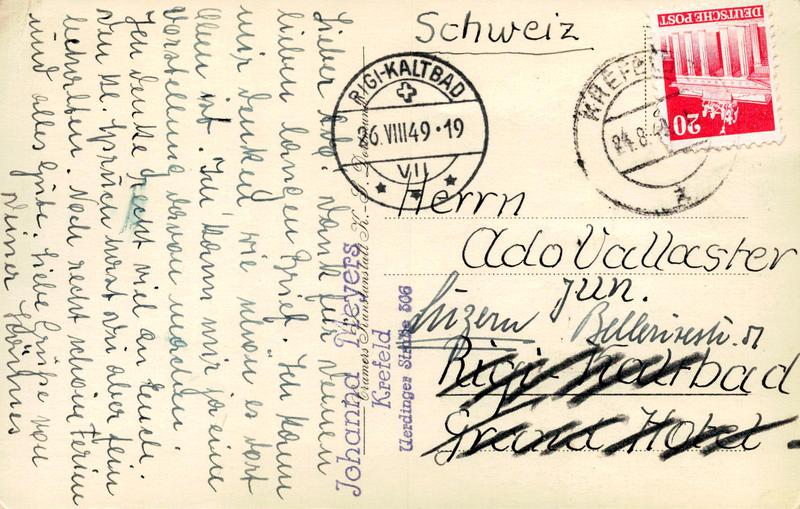 Lieber Ado! Dank für Deinen
lieben langen Brief. Ich kann
mir denken wie schön es dort
oben ist. Ich kann mir ja eine
Vorstellung davon machen.
Ich denke recht viel an Euch.
Den kl. Spruch wirst du aber fein
behalten. Noch recht schöne Ferien
und alles Gute. Liebe Grüße von
Deiner
Johanna Meyers
Krefeld
Uerdinger Straße 306
Cramers Kunstanstalt K.-G. Dortmund
Schweiz
RIGI-KALTBAD
26.VIII49·19
VII
KREFELD
24.8.49
DEUTSCHE POST
20
Herrn
Ado Vallaster
jun.
Luzern Bellerivestr. 51
Rigi-Kaltbad
Grand Hotel